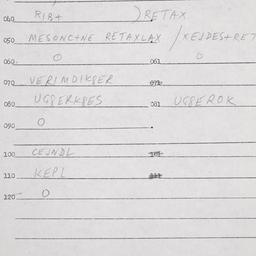 040 RIB+ ) RETAX
050 MESONC+NE RETAXLAX / XEJDES+RET
060 O 061 O
070 VERIMDIKPER 071
080 UGPERKPES 081 UGPEROK
090 O
100 CEJNDL 101
110 KEPL 111
120 O